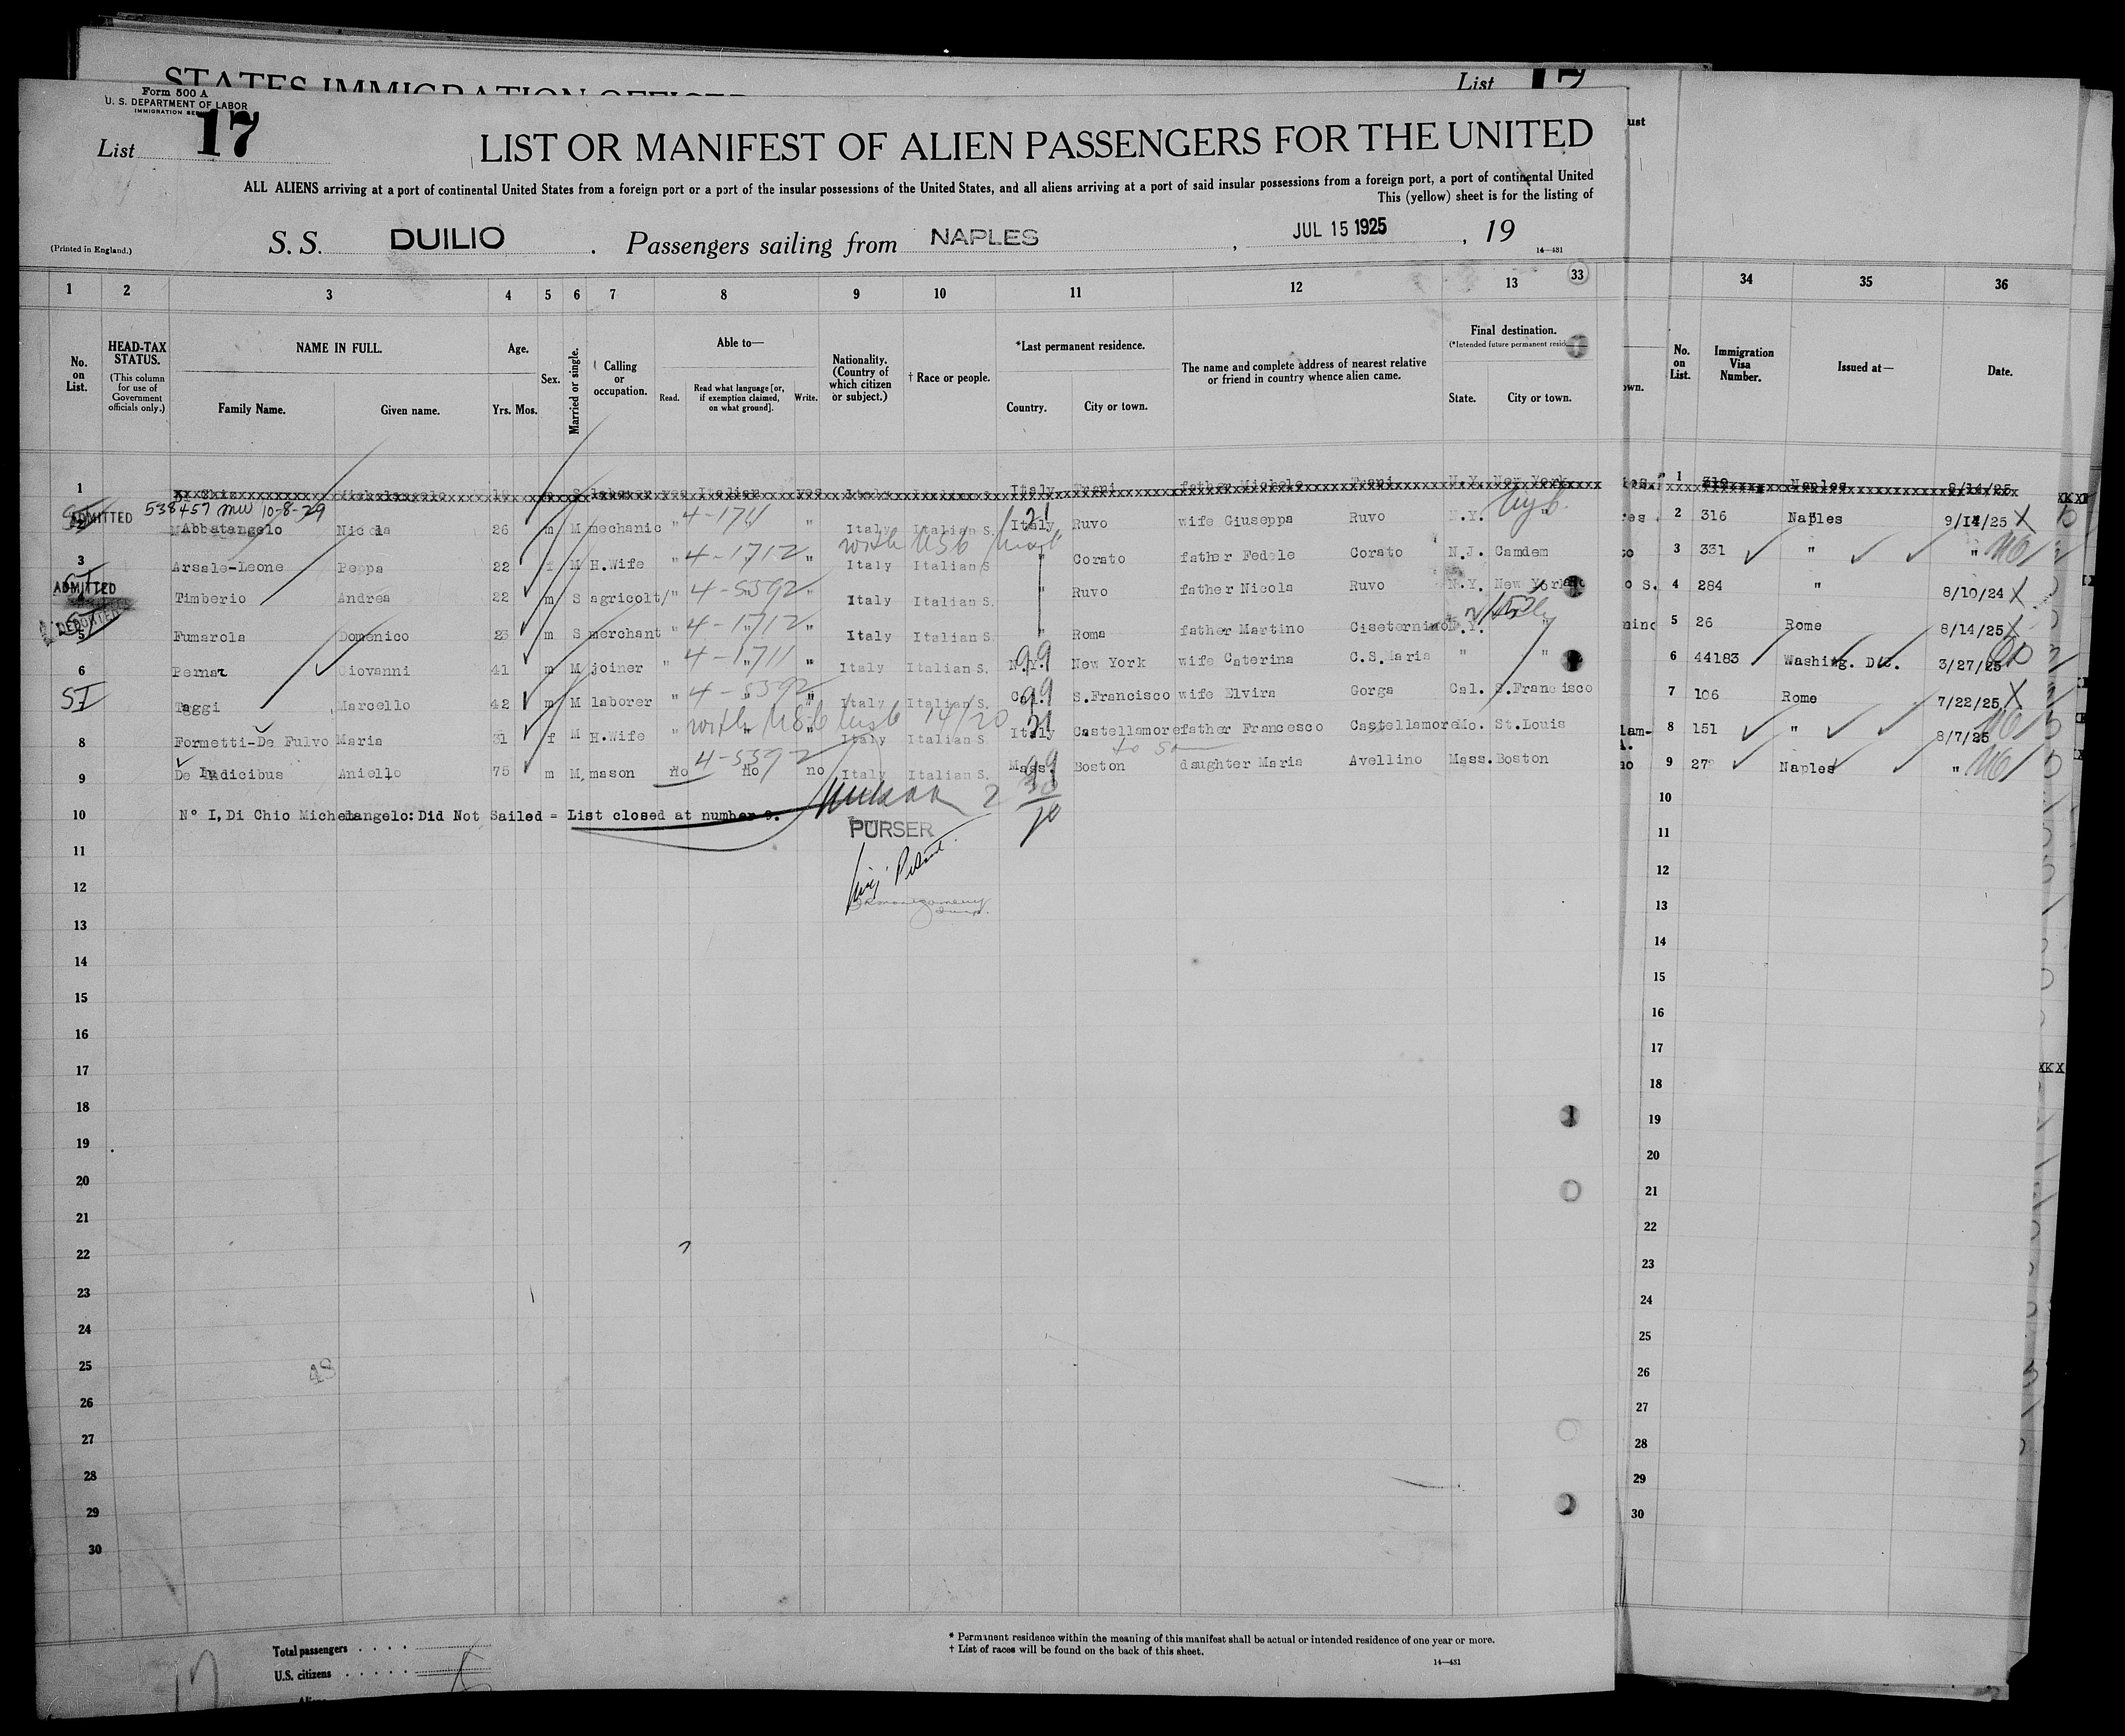 STATES IMMIGRATION OFFICER
List 17
Form 500 A
U. S. DEPARTMENT OF LABOR
IMMIGRATION SERVICE
List 17
LIST OR MANIFEST OF ALIEN PASSENGERS FOR THE UNITED
ALL ALIENS arriving at a port of continental United States from a foreign port or a port of the insular possessions of the United States, and all aliens arriving at a port of said insular possessions from a foreign port, a port of continental United
This (yellow) sheet is for the listing of
(Printed in England.) S. S. DUILIO . Passengers sailing from NAPLES , JUL 15 1925 , 19
14—481
1 2 3 4 5 6 7 8 9 10 11 12 13 33 34 35 36
No. on List. HEAD-TAX STATUS. (This column for use of Government officials only.) NAME IN FULL. Family Name. Given name. Age. Yrs. Mos. Sex. Married or single. Calling or occupation. Able to— Read. Read what language [or, if exemption claimed, on what ground]. Write. Nationality. (Country of which citizen or subject.) † Race or people. *Last permanent residence. Country. City or town. The name and complete address of nearest relative or friend in country whence alien came. Final destination. (*Intended future permanent resid State. City or town. No. on List. Immigration Visa Number. Issued at— Date.
1 Italian yes Italy Italy Trani father Michele Trani N.Y. New York 1 319 Naples 8/14/25
ADMITTED 538457 10-8-29
2 Abbatangelo Nicola 26 m M mechanic " 4-1711 " Italy Italian S. Italy 21 Ruvo wife Giuseppa Ruvo N.Y. " 2 316 Naples 9/14/25 X
3 Arsale-Leone Peppa 22 f M H.Wife " 4-1712 " Italy Italian S " Corato father Fedele Corato N.J. Camdem 3 331 " "
ADMITTED
4 Timberio Andrea 22 m S agricolt/ " 4-5392 " Italy Italian S. " Ruvo father Nicola Ruvo N.Y. New York 4 284 " 8/10/24 X
DEPORTED
5 Fumarola Domenico 23 m S merchant " 4-1712 " Italy Italian S. " Roma father Martino Cisternino N.Y. " 5 26 Rome 8/14/25 X
6 Pernar Giovanni 41 m M joiner " 4-1711 " Italy Italian S. N.Y. 99 New York wife Caterina C.S.Maria " " 6 44183 Washing. D.C. 3/27/25
SI
7 Taggi Marcello 42 m M laborer " 4-5392 " Italy Italian S. Cal. 99 S.Francisco wife Elvira Gorga Cal. S.Francisco 7 106 Rome 7/22/25 X
8 Formetti-De Fulvo Maria 31 f M H.Wife " " " Italy Italian S. Italy 21 Castellamore father Francesco Castellamore Mo. St.Louis 8 151 " 8/7/25
9 De Indicibus Aniello 75 m M, mason no 4-5392 no no Italy Italian S. Mass. 99 Boston daughter Maria Avellino Mass. Boston 9 27 Naples "
10 N° I, Di Chio Michelangelo: Did Not Sailed = List closed at number 9. 10
PURSER
11 11
12 12
13 13
14 14
15 15
16 16
17 17
18 18
19 19
20 20
21 21
22 22
23 23
24 24
25 25
48
26 26
27 27
28 28
29 29
30 30
Total passengers
U.S. citizens
Aliens
* Permanent residence within the meaning of this manifest shall be actual or intended residence of one year or more.
† List of races will be found on the back of this sheet.
14—481